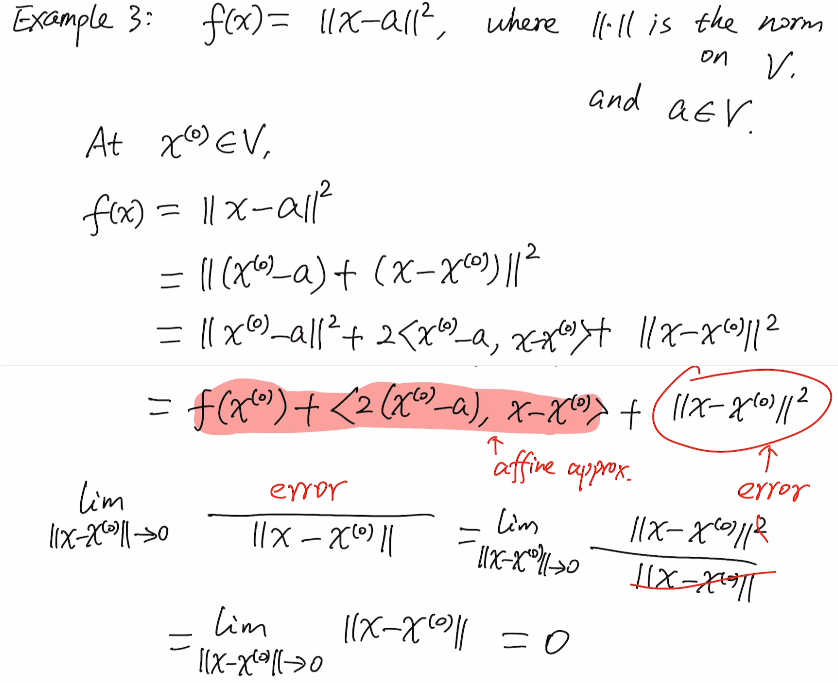 Example 3: f(x) = ||x-a||², where ||·|| is the norm
on V.
and a∈V.
At x⁽⁰⁾∈V,
f(x) = ||x-a||²
= ||(x⁽⁰⁾-a) + (x-x⁽⁰⁾)||²
= ||x⁽⁰⁾-a||² + 2<x⁽⁰⁾-a, x-x⁽⁰⁾> + ||x-x⁽⁰⁾||²
= f(x⁽⁰⁾) + <2(x⁽⁰⁾-a), x-x⁽⁰⁾> + ||x-x⁽⁰⁾||²
↑ affine approx.
↑ error
lim_{||x-x⁽⁰⁾||→0} error / ||x-x⁽⁰⁾|| = lim_{||x-x⁽⁰⁾||→0} ||x-x⁽⁰⁾||² / ||x-x⁽⁰⁾||
= lim_{||x-x⁽⁰⁾||→0} ||x-x⁽⁰⁾|| = 0